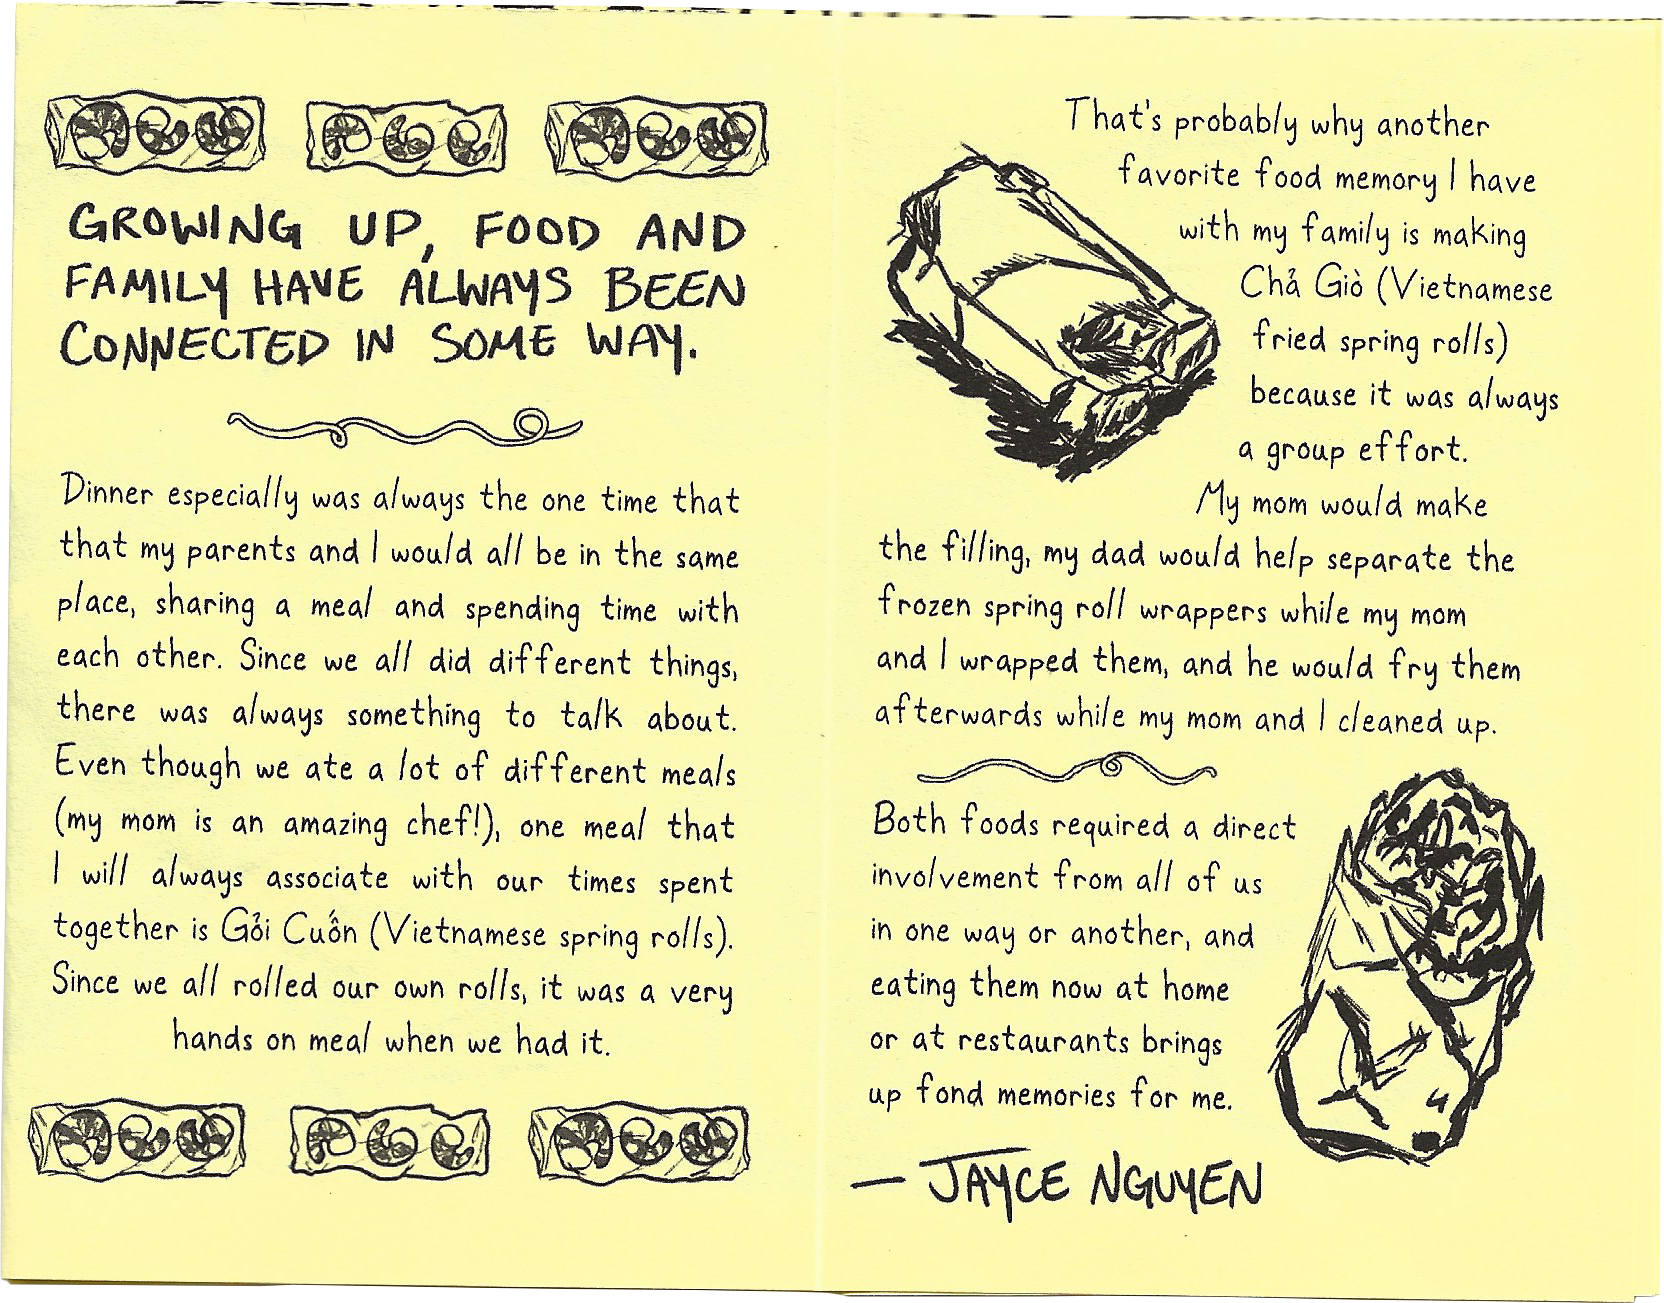 GROWING UP, FOOD AND
FAMILY HAVE ALWAYS BEEN
CONNECTED IN SOME WAY.
Dinner especially was always the one time that
that my parents and I would all be in the same
place, sharing a meal and spending time with
each other. Since we all did different things,
there was always something to talk about.
Even though we ate a lot of different meals
(my mom is an amazing chef!), one meal that
I will always associate with our times spent
together is Gỏi Cuốn (Vietnamese spring rolls).
Since we all rolled our own rolls, it was a very
hands on meal when we had it.
That's probably why another
favorite food memory I have
with my family is making
Chả Giò (Vietnamese
fried spring rolls)
because it was always
a group effort.
My mom would make
the filling, my dad would help separate the
frozen spring roll wrappers while my mom
and I wrapped them, and he would fry them
afterwards while my mom and I cleaned up.
Both foods required a direct
involvement from all of us
in one way or another, and
eating them now at home
or at restaurants brings
up fond memories for me.
— JAYCE NGUYEN